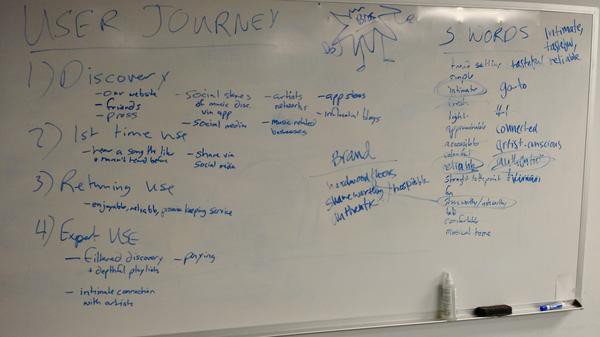 USER JOURNEY
1) Discovery
- our website
- friends
- press
- social shares
of music disc.
via app
- social media
- artists
networks
- music related
businesses
- app stores
- influential blogs
2) 1st time use
- hear a song they like
+ haven't heard before
- share via
social media
3) Returning use
- enjoyable, reliable, promise keeping service
4) Expert USE
- filtered discovery
+ depthful playlists
- paying
- intimate connection
with artists
Brand
shareworthy
hospitable
authentic
5 WORDS
Intimate,
tasteful,
reliable
tasteful
simple
intimate
go-to
fresh
light
#1
approachable
connected
accessible
artist-conscious
colorful
reliable
authentic
straight to the point
fun
trustworthy/
comfortable
musical home